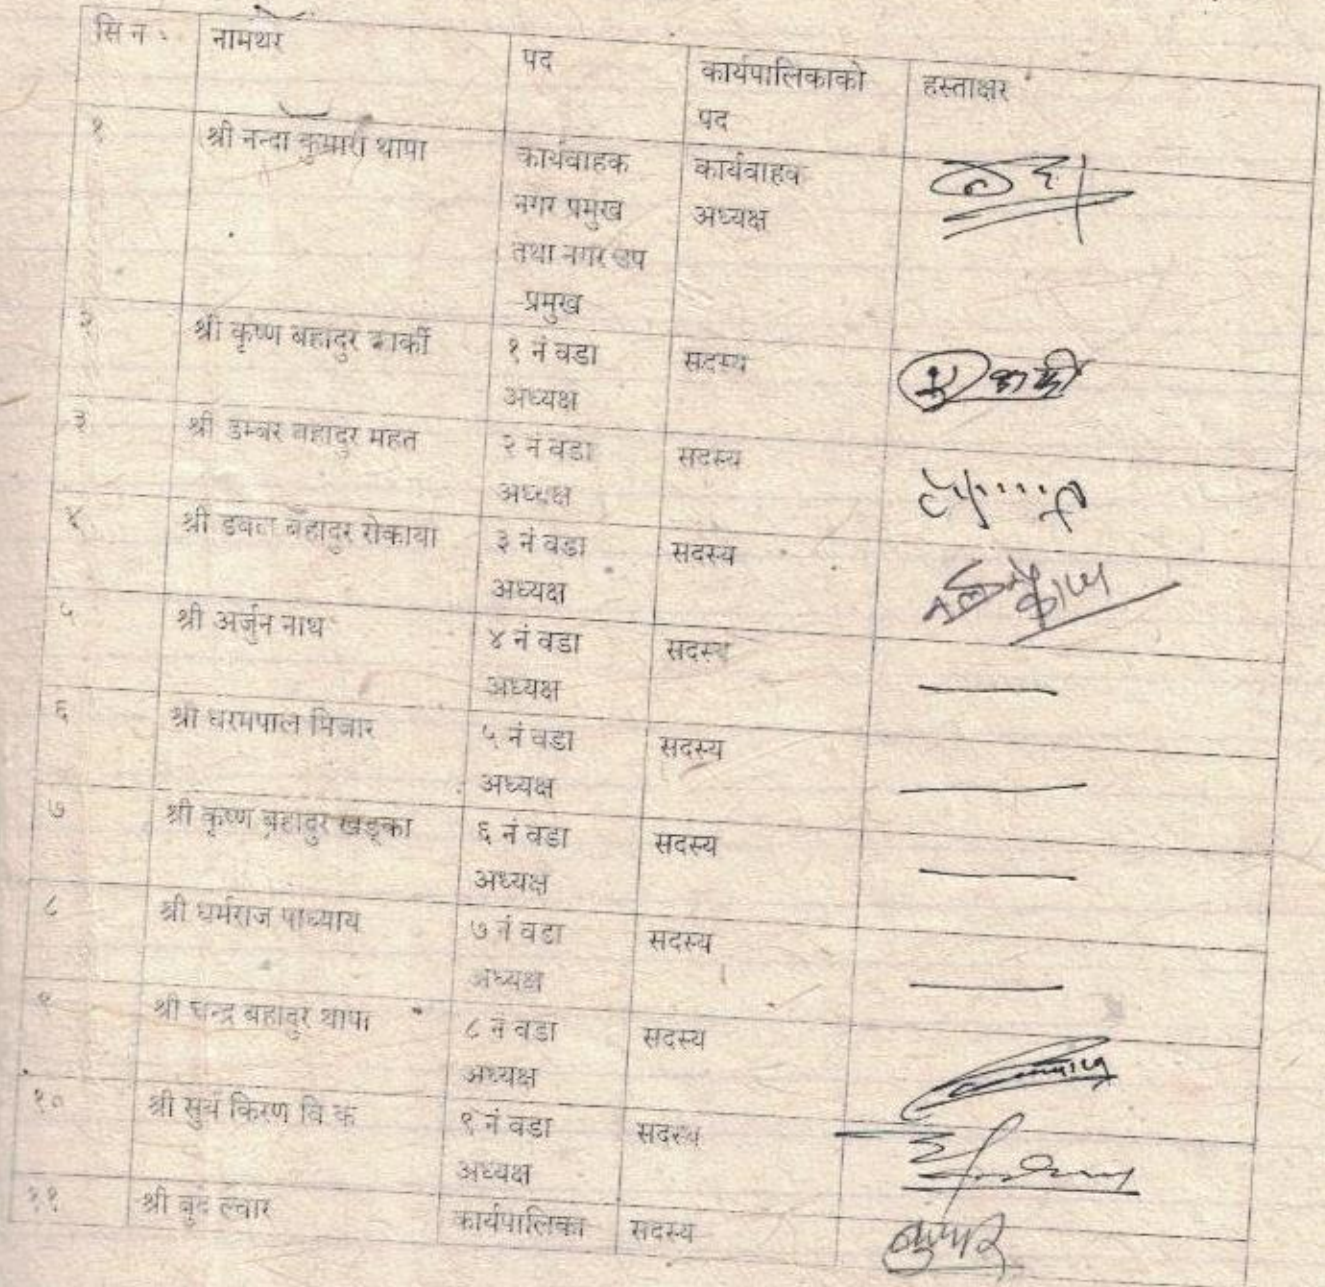 सि नं नामथर पद कार्यपालिकाको पद हस्ताक्षर
१ श्री नन्दा कुमारी थापा कार्यवाहक नगर प्रमुख तथा नगर उप प्रमुख कार्यवाहक अध्यक्ष
२ श्री कृष्ण बहादुर कार्की १ नं वडा अध्यक्ष सदस्य
३ श्री डम्बर बहादुर महत २ नं वडा अध्यक्ष सदस्य
४ श्री डबल बहादुर रोकाया ३ नं वडा अध्यक्ष सदस्य
५ श्री अर्जुन नाथ ४ नं वडा अध्यक्ष सदस्य
६ श्री धरमपाल मिजार ५ नं वडा अध्यक्ष सदस्य
७ श्री कृष्ण बहादुर खड्का ६ नं वडा अध्यक्ष सदस्य
८ श्री धर्मराज पाध्याय ७ नं वडा अध्यक्ष सदस्य
९ श्री चन्द्र बहादुर थापा ८ नं वडा अध्यक्ष सदस्य
१० श्री सुर्य किरण वि क ९ नं वडा अध्यक्ष सदस्य
११ श्री कार्यपालिका सदस्य